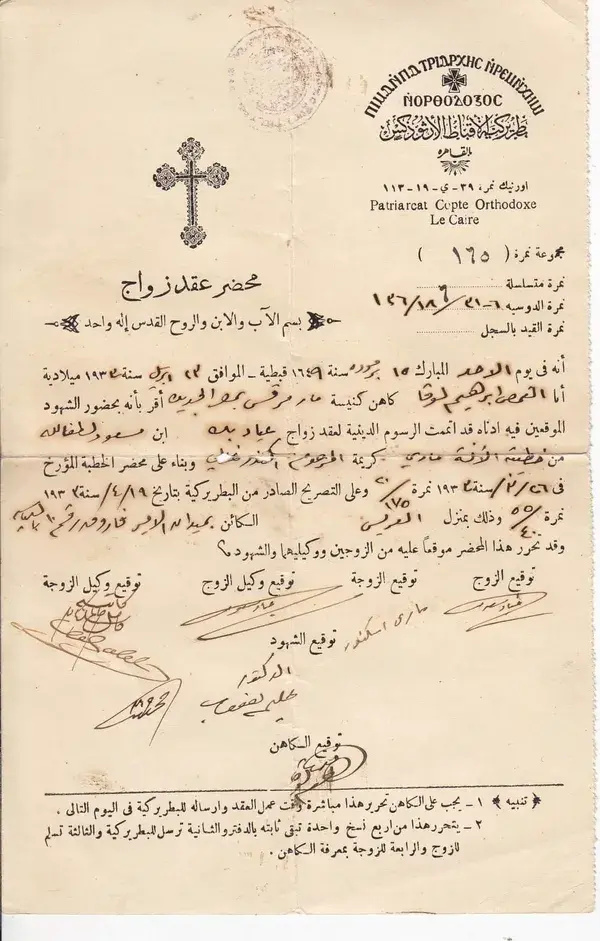 ⲠⲒⲰⲎⲚⲠⲀⲦⲢⲒⲀⲢⲬⲎⲤ ⲚⲢⲈⲘⲚⲬⲎⲘⲒ
ⲚⲞⲢⲐⲞⲆⲞⲜⲞⲤ
بطريركية الأقباط الأرثوذكس
بالقاهرة
اورنيك نمره ٣٩-ي-١٩-١١٣
Patriarcat Copte Orthodoxe
Le Caire
مجموعة نمرة ( ١٦٥ )
نمرة متسلسلة ٩
نمرة الدوسيه ٦-٣١/١٨/١٣٦
نمرة القيد بالسجل
محضر عقد زواج
بسم الآب والابن والروح القدس إله واحد
أنه فى يوم الاحد المبارك ١٥ برموده سنة ١٦٤٩ قبطية - الموافق ٢٣ ابريل سنة ١٩٣٣ ميلادية
أنا القمص ابراهيم لوقا كاهن كنيسة مار مرقس بمصر الجديده أقر بأنه بحضور الشهود
الموقعين فيه ادناه قد اتممت الرسوم الدينية لعقد زواج عياد بك ابن مسعود لطف الله
من خطيبته الآنسة ماري كريمة المرحوم وبناء على محضر الخطبة المؤرخ
فى ٢٦/٣/سنة ١٩٣٣ نمرة وعلى التصريح الصادر من البطريركية بتاريخ ١٩/٤/سنة ١٩٣٣
نمرة وذلك بمنزل العريس الكائن بميدان الامير فاروق رقم
وقد تحرر هذا المحضر موقعاً عليه من الزوجين ووكيليهما والشهود
توقيع الزوج توقيع الزوجة توقيع وكيل الزوج توقيع وكيل الزوجة
مارى اسكندر
توقيع الشهود
الدكتور
توقيع الكاهن
تنبيه ١ - يجب على الكاهن تحرير هذا مباشرة وقت عمل العقد وارساله للبطريركية فى اليوم التالى .
٢ - يتحرر هذا من اربع نسخ واحدة تبقى ثابته بالدفتر والثانية ترسل للبطريركية والثالثة تسلم
للزوج والرابعة للزوجة بمعرفة الكاهن .